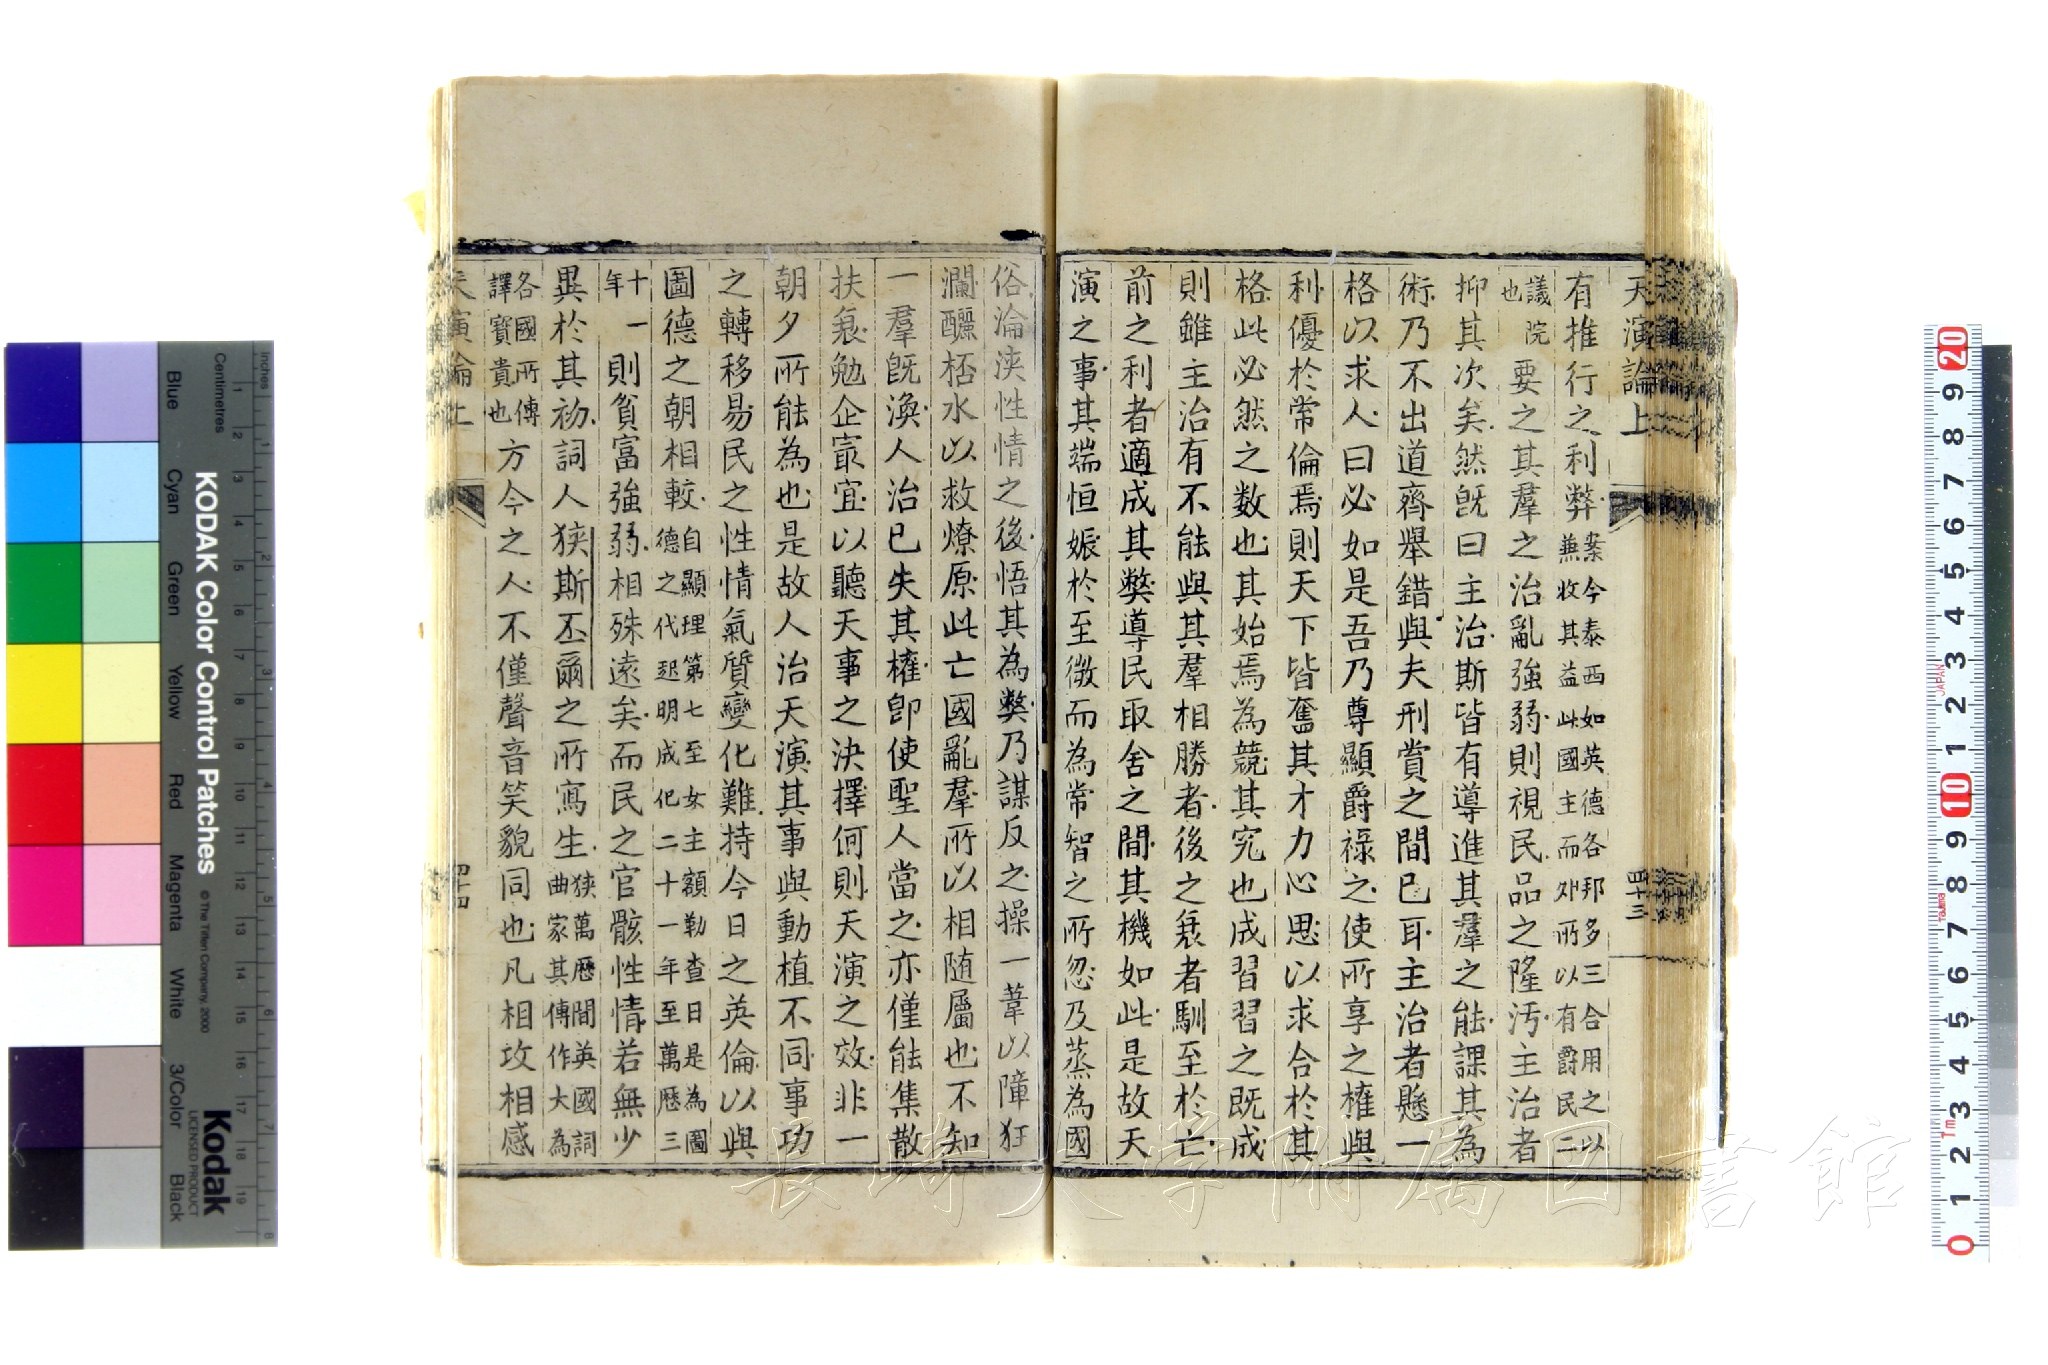 天演論上
四十三
有推行之利弊案今泰西如英德各邦多三合用之以
兼收其益此國主而外所以有爵民二
議院
也
要之其羣之治亂強弱則視民品之隆汚主治者
抑其次矣然既曰主治斯皆有導進其羣之能課其為
術乃不出道齊舉錯與夫刑賞之間已耳主治者懸一
格以求人曰必如是吾乃尊顯爵祿之使所享之權與
利優於常倫焉則天下皆奮其才力心思以求合於其
格此必然之數也其始焉為競其究也成習習之既成
則雖主治有不能與其羣相勝者後之衰者馴至於亡
前之利者適成其弊導民取舍之間其機如此是故天
演之事其端恒娠於至微而為常智之所忽及蒸為國
俗淪浹性情之後悟其為弊乃謀反之操一葦以障狂
瀾酾桮水以救燎原此亡國亂羣所以相隨屬也不知
一羣既渙人治已失其權即使聖人當之亦僅能集散
扶衰勉企最宜以聽天事之決擇何則天演之效非一
朝夕所能為也是故人治天演其事與動植不同事功
之轉移易民之性情氣質變化難持今日之英倫以與
圖德之朝相較自顯理第七至女主額勒查日是為圖
德之代起明成化二十一年至萬歷三
十
年
一則貧富強弱相殊遠矣而民之官骸性情若無少
異於其初詞人狹斯丕爾之所寫生狹萬歷間英國詞
曲家其傳作大為
各國所傳
譯寶貴也
方今之人不僅聲音笑貌同也凡相攻相感
天演論上
四十四
長崎大学附属図書館
KODAK Color Control Patches
© The Tiffen Company, 2000
Kodak
LICENSED PRODUCT
inches
Centimetres
Blue
Cyan
Green
Yellow
Red
Magenta
White
3/Color
Black
1 2 3 4 5 6 7 8 9 10 11 12 13 14 15 16 17 18 19
1 2 3 4 5 6 7 8
20 9 8 7 6 5 4 3 2 1 10 9 8 7 6 5 4 3 2 1 0
JAPAN
Tajima
1m